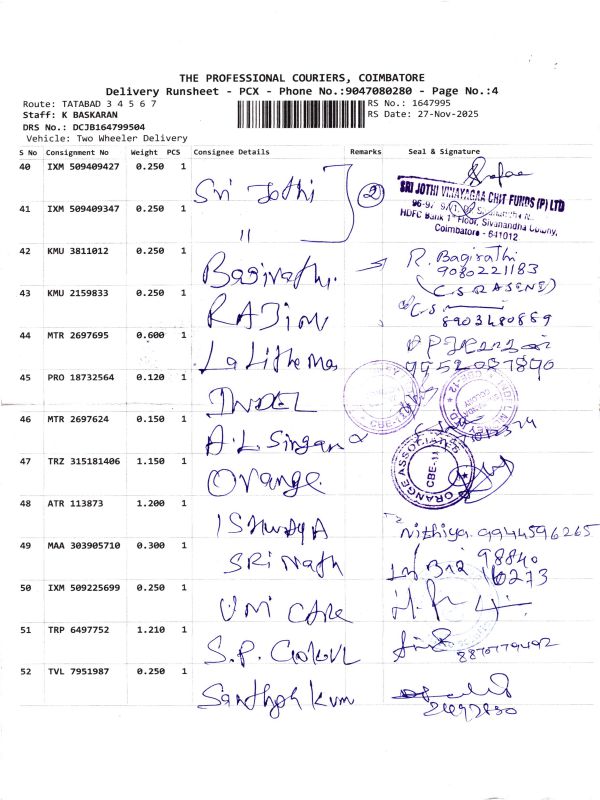 THE PROFESSIONAL COURIERS, COIMBATORE
Delivery Runsheet - PCX - Phone No.:9047080280 - Page No.:4
Route: TATABAD 3 4 5 6 7
RS No.: 1647995
Staff: K BASKARAN
RS Date: 27-Nov-2025
DRS No.: DCJB164799504
Vehicle: Two Wheeler Delivery
S No Consignment No Weight PCS Consignee Details Remarks Seal & Signature
40 IXM 509409427 0.250 1 Sri Jothi 2
SRI JOTHI VINAYAGAA CHIT FUNDS (P) LTD
HDFC Bank 1st Floor, Sivanandha Colony,
Coimbatore - 641012
41 IXM 509409347 0.250 1 "
42 KMU 3811012 0.250 1 Bagirathi. R. Bagirathi
9080221183
43 KMU 2159833 0.250 1 C.S
8903480889
44 MTR 2697695 0.600 1
9952037890
45 PRO 18732564 0.120 1 INDEL
46 MTR 2697624 0.150 1 A.L. Singan
47 TRZ 315181406 1.150 1 Orange
ORANGE ASSOCIATES
CBE-11
48 ATR 113873 1.200 1 ISHWARYA Nithiya 9944596265
49 MAA 303905710 0.300 1 SRINATH 98840
50 IXM 509225699 0.250 1 UNI CARE
51 TRP 6497752 1.210 1 S.P. GOKUL
52 TVL 7951987 0.250 1 Santhosh Kum